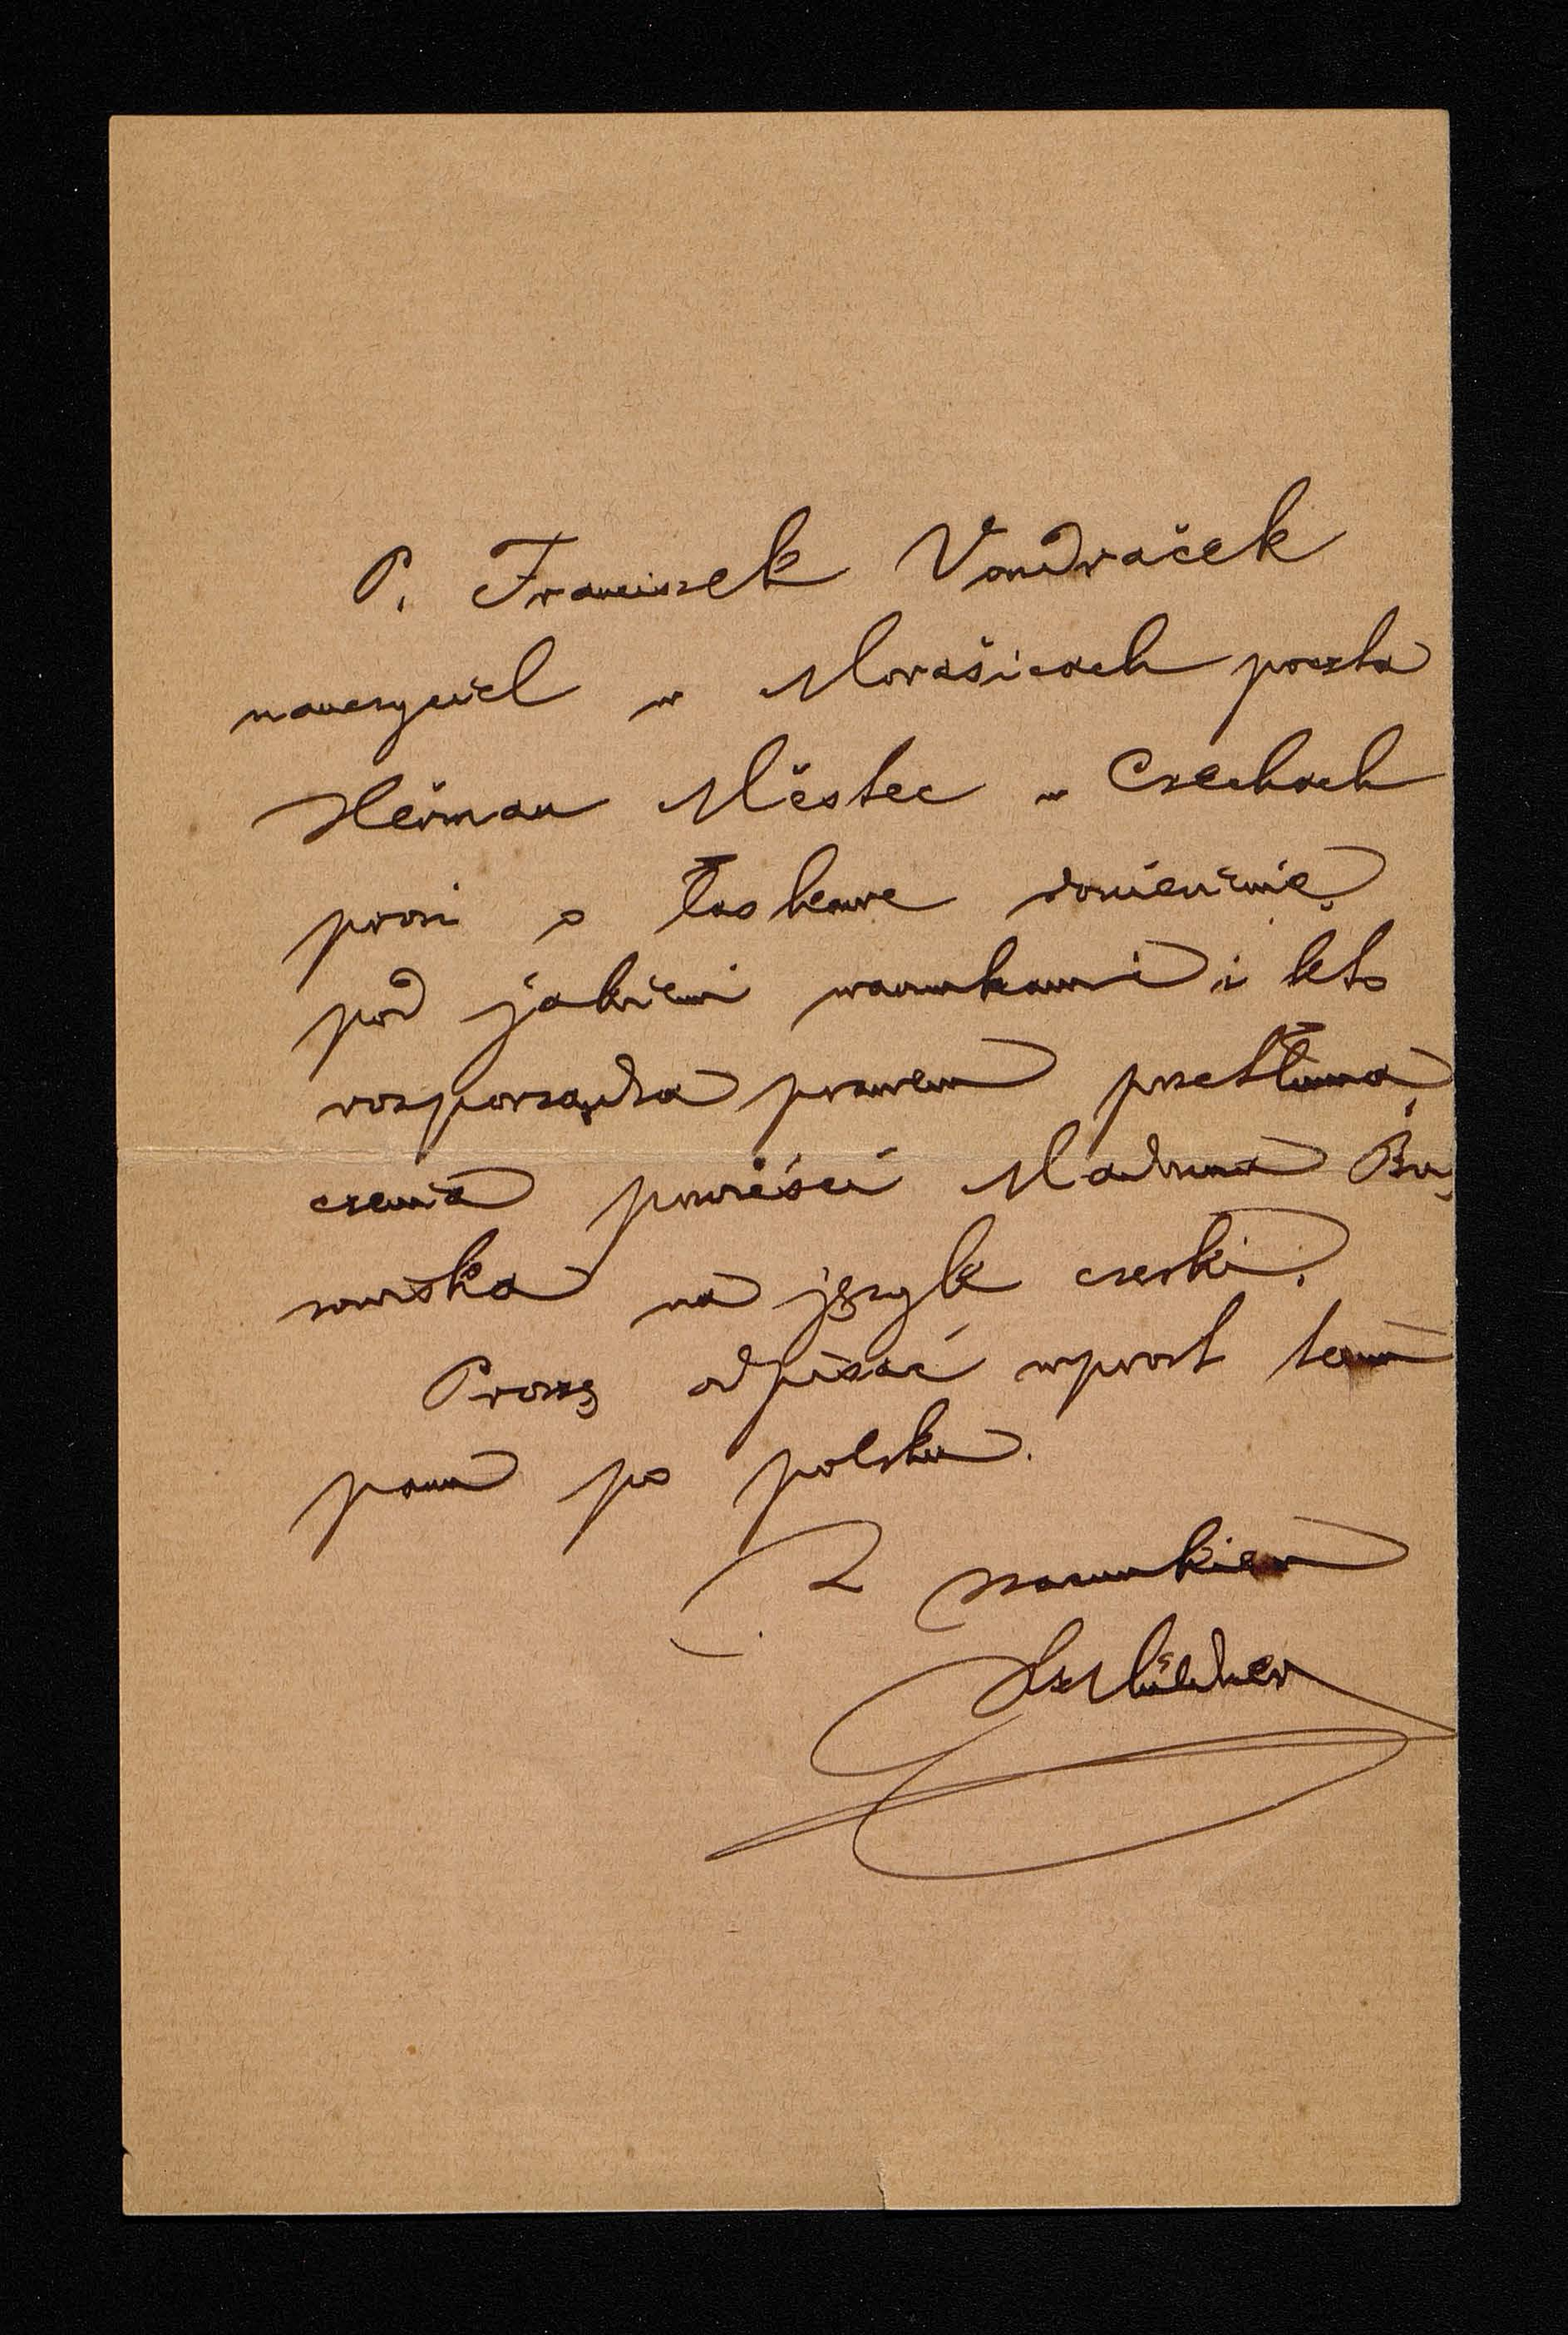 P. Franciszek Vondraček
nauczyciel w Morašicach poczta
Heřman Městec w Czechach
prosi o łaskawe doniesienie
pod jakiemi warunkami i kto
rozporządza prawem przetłuma
czenia powieści Madonna Bu
sowiska na język czeski.
Proszę odpisać wprost temu
panu po polsku.
Z szacunkiem